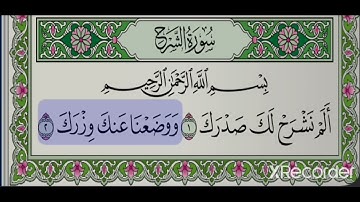 سُورَةُ الشَّرْحِ
بِسْمِ اللَّهِ الرَّحْمَٰنِ الرَّحِيمِ
أَلَمْ نَشْرَحْ لَكَ صَدْرَكَ ١ وَوَضَعْنَا عَنكَ وِزْرَكَ ٢
XRecorder